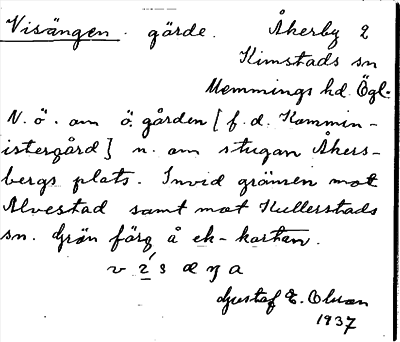 Visängen. gärde. Åkerby 2
Kimstads sn
Memmings hd. Ögl.
N. ö. om ö. gården [f. d. Kommin-
istergård] n. om stugan Åkers-
bergs plats. Invid gränsen mot
Alvestad samt mot Kullerstads
sn. Grön färg å ek-kartan.
Gustaf E. Olsson
1937